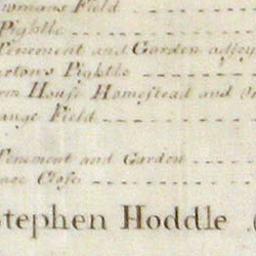 wmans Field
Pightle
Tenement and Garden adjoy
rtons Pightle
rm House Homestead and Or
ange Field
Tenement and Garden
ace Close
Stephen Hoddle